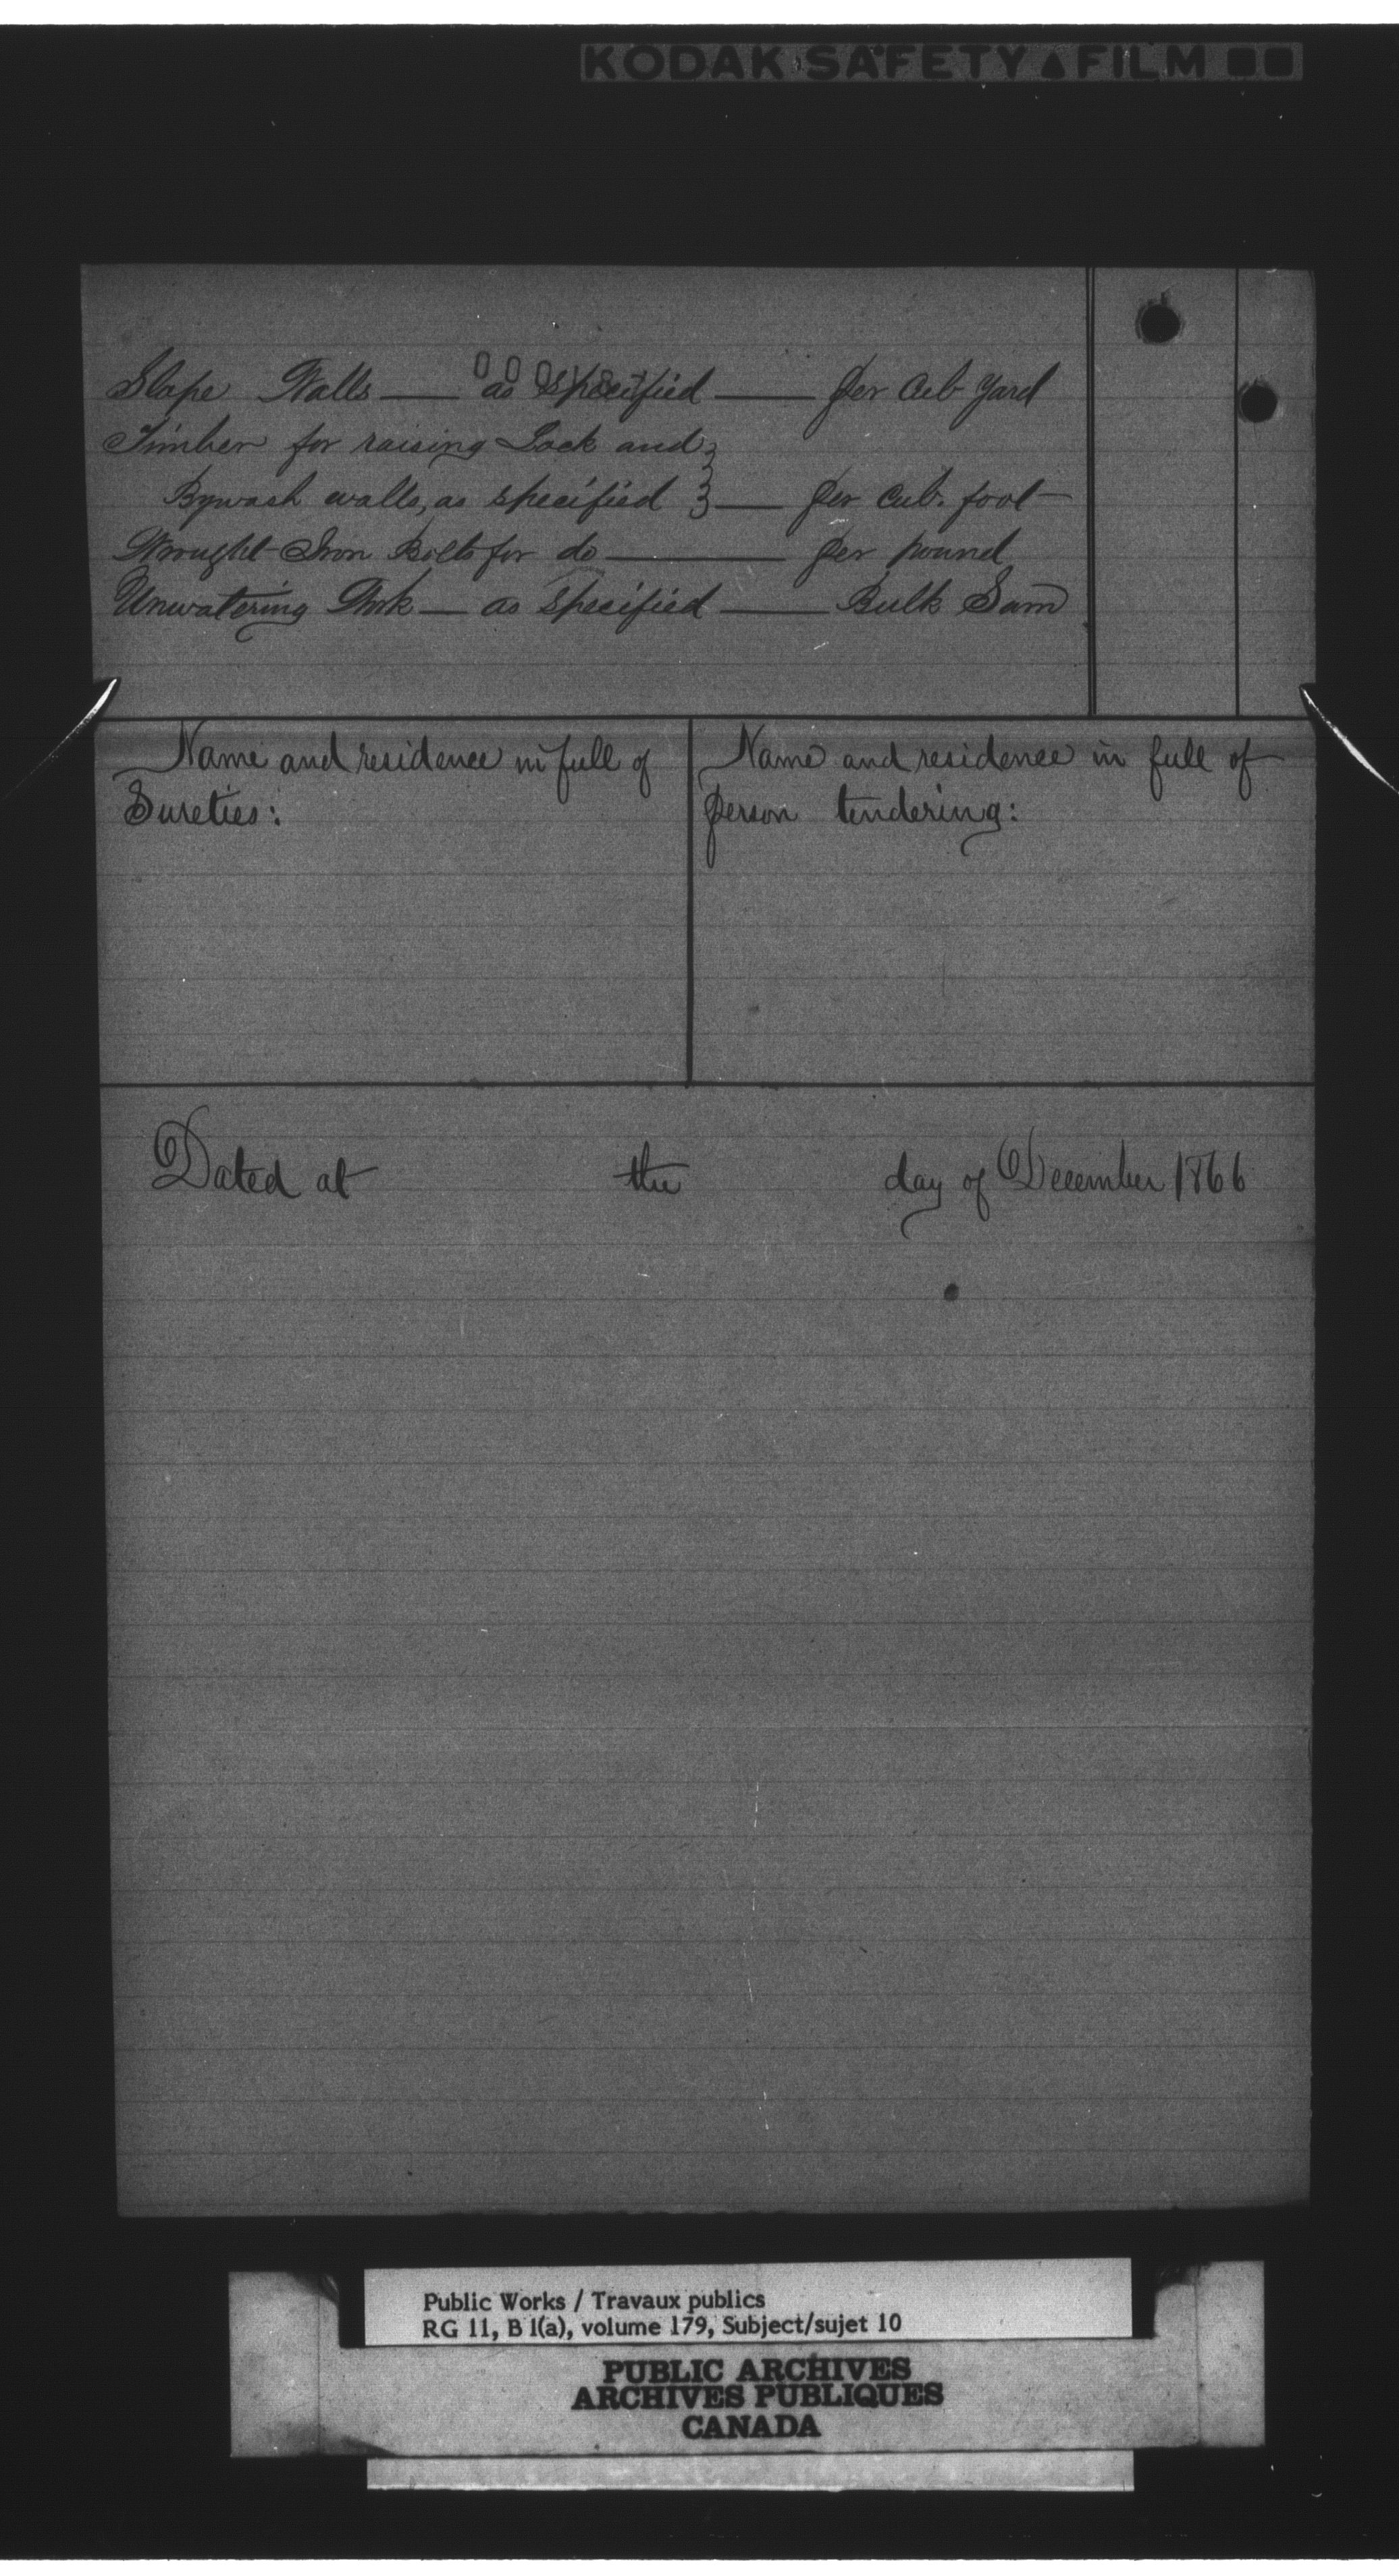 KODAK SAFETY FILM
Slope Walls — as specified — per Cub Yard
Timber for raising Lock and }
Bywash walls, as specified } — per Cub. foot
Wrought Iron Bolts for do — per pound
Unwatering Work — as specified — Bulk Sum
Name and residence in full of
Sureties:
Name and residence in full of
person tendering:
Dated at the day of December 1866
Public Works / Travaux publics
RG 11, B 1(a), volume 179, Subject/sujet 10
PUBLIC ARCHIVES
ARCHIVES PUBLIQUES
CANADA